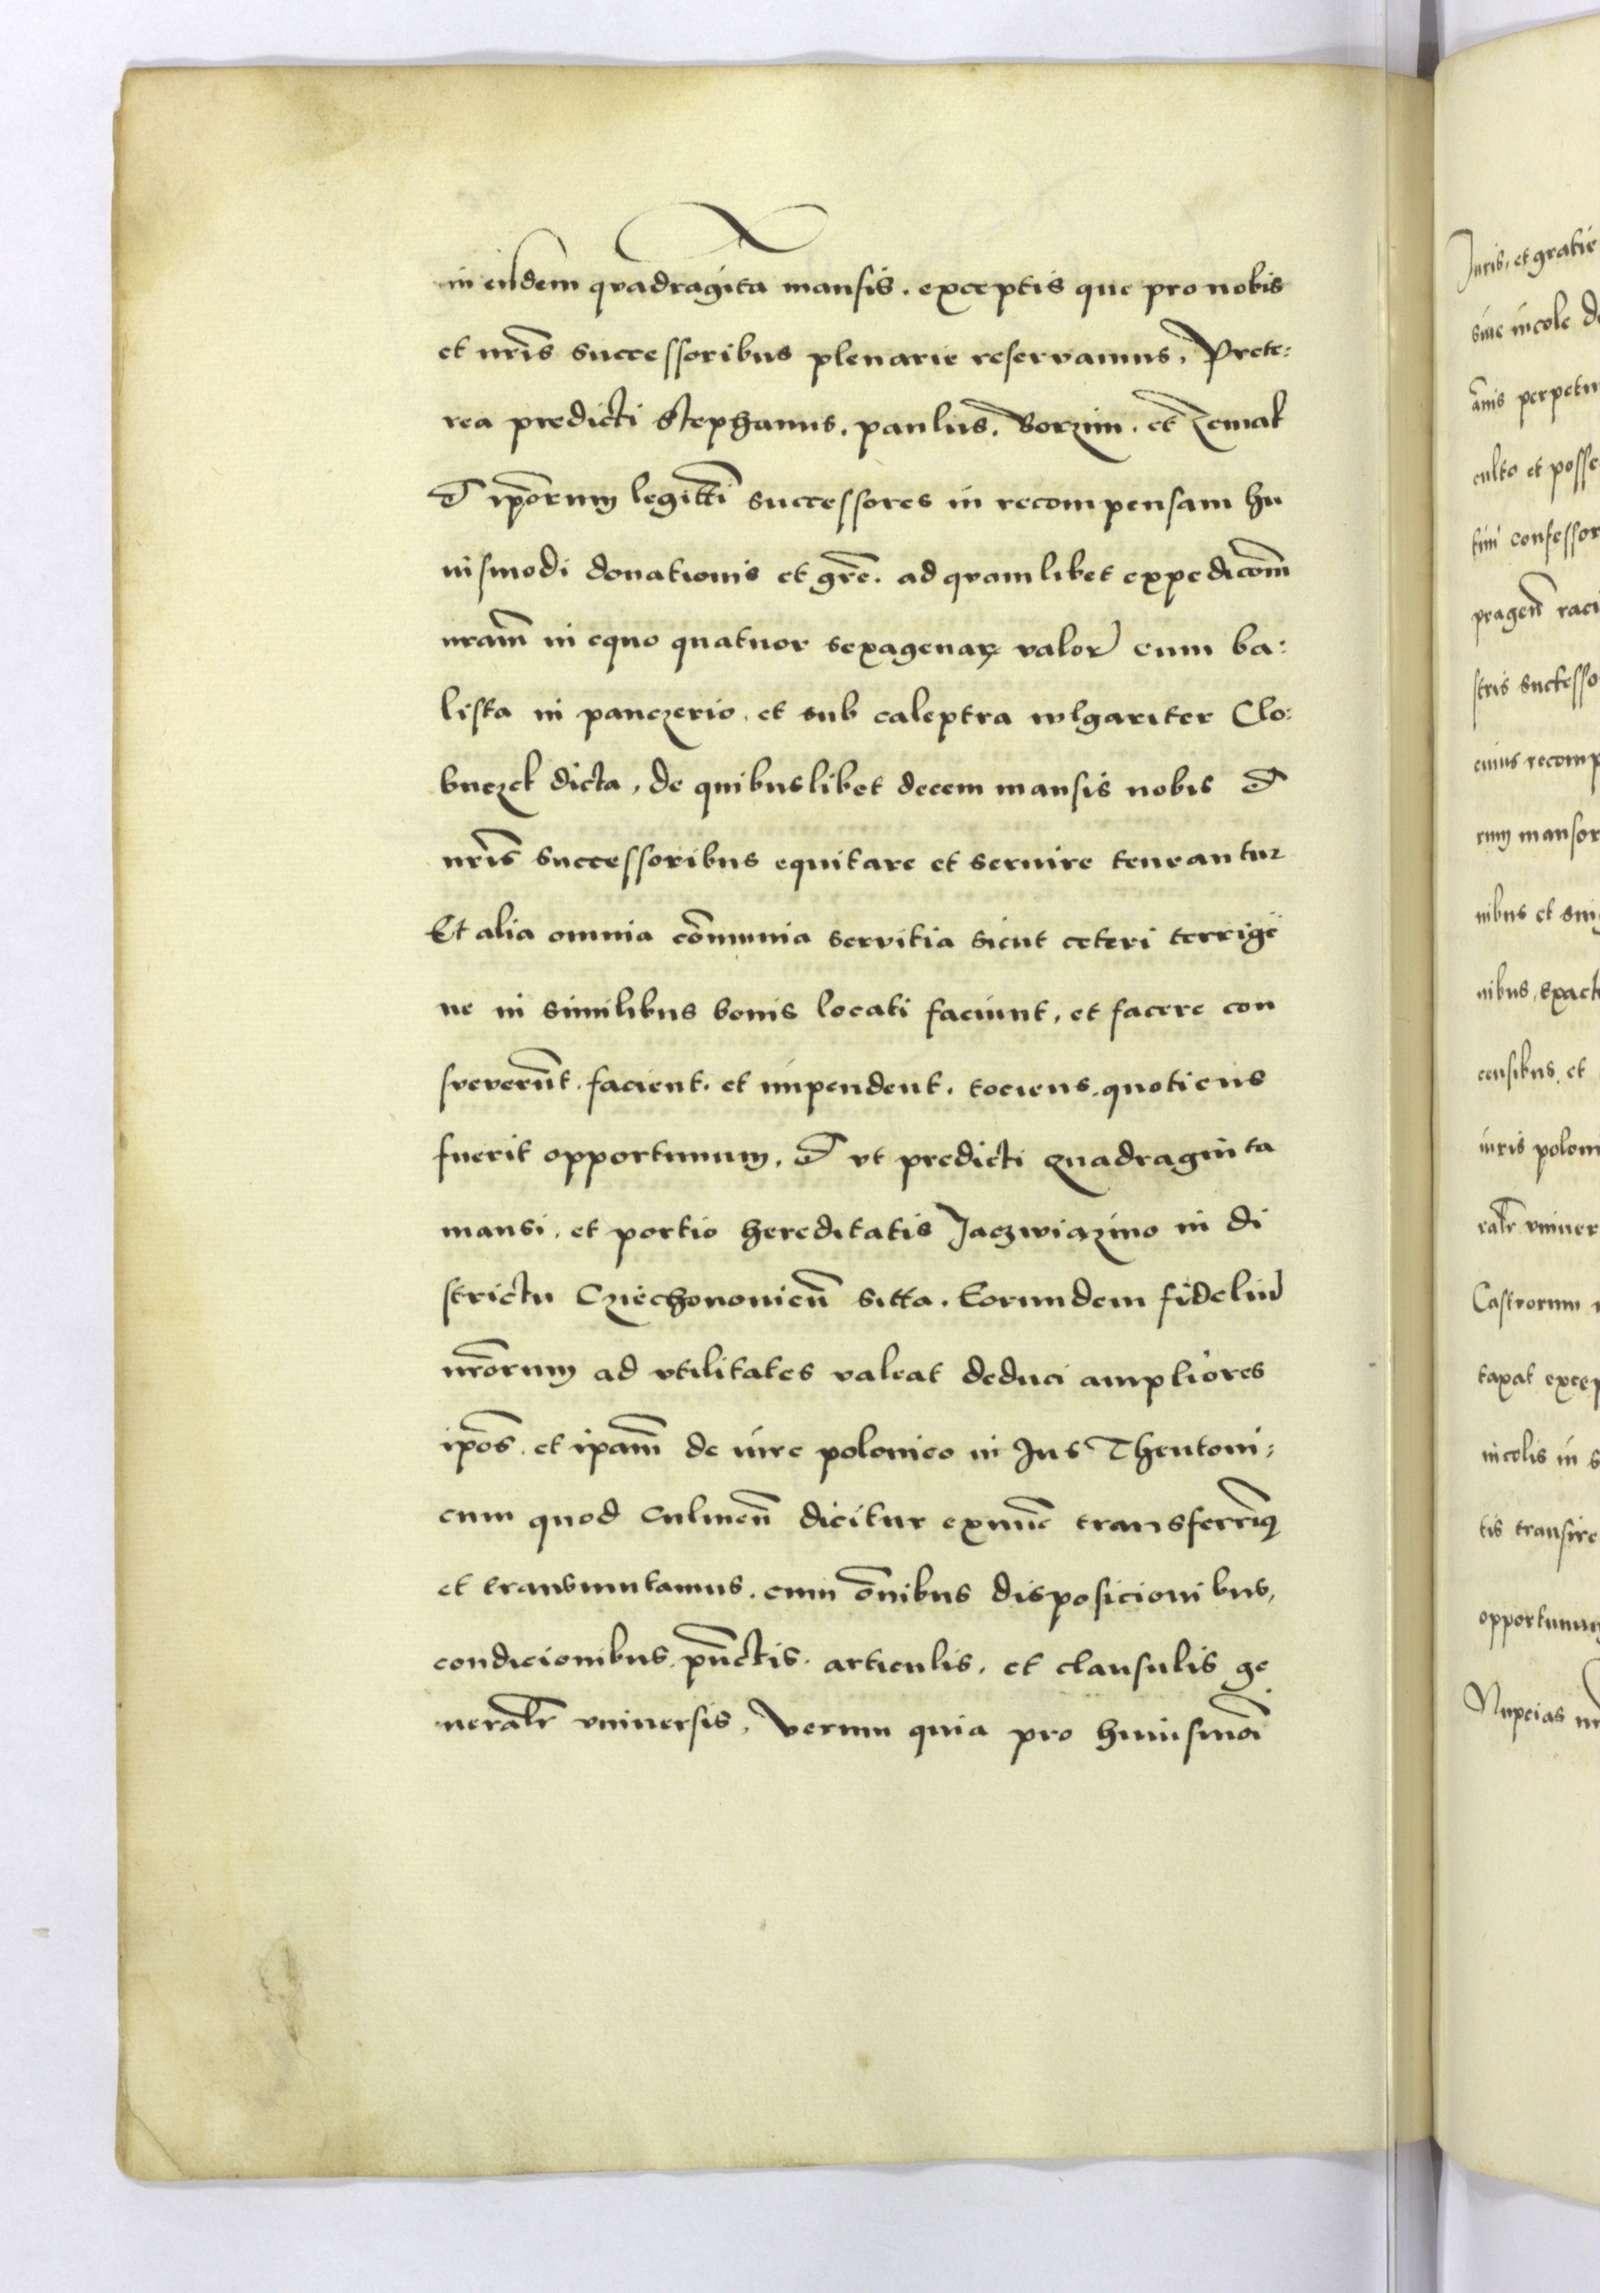 in eisdem qvadraginta mansis. exceptis que pro nobis
et nr̃is successoribus plenarie reservamus, Prete:
rea predicti Stephanus. paulus. Borzim. et Zemak
et ip̃orum legitti͂ successores in recompensam hu
iusmodi donationis et gr̃e. ad qvamlibet expedicõm
nrãm in equo quatuor sexagenaꝝ valoꝛ cum ba:
lista in panczerio. et sub caleptra wlgariter Clo:
buczek dicta, de quibuslibet decem mansis nobis et
nr̃is successoribus equitare et seruire teneantur
Et alia omnia cõmunia servitia sicut ceteri terrige
ne in similibus bonis locati faciunt, et facere con
sveverũt. facient. et impendent. tociens. quotiens
fuerit opportunum, et vt predicti quadraginta
mansi. et portio hereditatis Jaczwiazino in di
strictu Cziechonouieñ sitta. Eorundem fideliũ
nrõrum ad vtilitates valeat deduci ampliores
ip̃os. et ip̃am de iure polonico in Jus Theutoni:
cum quod culmeñ dicitur exnũc transferrimꝯ
et transmutamus. cum õnibus disposicionibus,
condicionibus. pũctis. articulis. et clausulis ge
neralr̃ vniuersis, verum quia pro huiusmõi
Juris, et gratie
siue incole
perpetu
culto et posse
confessor
pragen̄
stris successo
cuius recomp
rum mansor
nibus et
nibus, exact
censibus. et
iuris poloni
vniuer
Castrorum
taxat excep
incolis in s
tis transire
opportunum
Nupcias